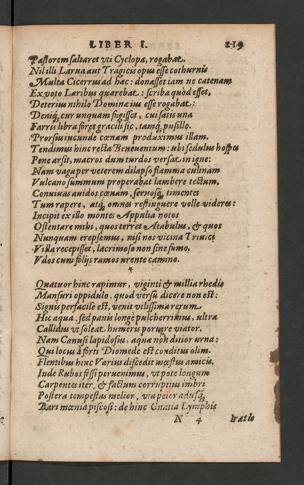 LIBER I. 219
Pastorem saltaret vti Cyclopa, rogabat.
Nil illi Larua aut Tragicis opus esse cothurnis
Multa Cicerrus ad hæc: donasset iam ne catenam
Ex voto Laribus quærebat: scriba quod esset,
Deterius nihilo Dominæ ius esse rogabat:
Deniq, cur unquam fugisset, cui satis vna
Farris libra foret gracili sic, tamq, pusillo.
Prorsus iucunde cœnam produximus illam.
Tendimus hinc recta Beneuentum: vbi sedulus hospes
Pene arsit, macros dum turdos versat in igne:
Nam vaga per veterem dilapso flamma culinam
Vulcano summum properabat lambere tectum,
Conuiuas auidos cœnam, seruosq, timentes
Tum rapere, atq, omneis restinguere velle videres:
Incipit ex illo montes Appulia notos
Ostentare mihi, quos torret Atabulus, & quos
Nunquam erepsemus, nisi nos vicina Triuici
Villa recepisset, lacrimoso non sine fumo,
Vdos cum folijs ramos vrente camino.
*
Quatuor hinc rapimur, viginti & millia rhedis
Mansuri oppidulo, quod versu dicere non est:
Signis perfacile est, venit vilissima rerum
Hic aqua, sed panis longe pulcherrimus, vltra
Callidus vt soleat humeris portare viator.
Nam Canusi lapidosus, aquæ non ditior vrna:
Qui locus à forti Diomede est conditus olim.
Flentibus hinc Varius discedit mœstus amicis.
Inde Rubos fessi peruenimus, vt pote longum
Carpentes iter, & factum corruptius imbri
Postera tempestas melior, via peior adusq,
Bari mœnia piscosi: de hinc Gnatia Lymphis
N 4 Iratis